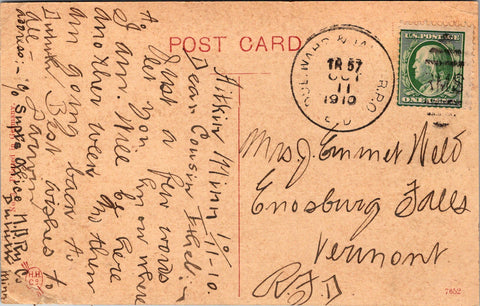 POST CARD
TR 57
OCT
11
1910
R.P.O.
U.S. POSTAGE
ONE CENT
Mrs J. Emmet Weld
Enosburg Falls
Vermont
RFD
Aitkin Minn 10/11-10.
Dear Cousin Ethel:-
Just a few words
to let you know where
I am. Will be here
another week in then
am going back to
Duluth. Best wishes to
all-
Address:- % Supts Office M.&I. Ry. Co
Duluth Minn
7652